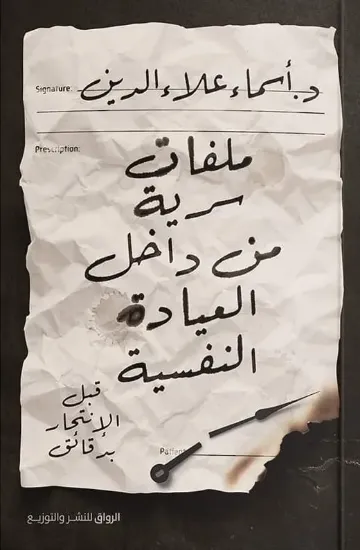 Signature: د. أسماء علاء الدين
Prescription:
ملفات
سرية
من داخل
العيادة
النفسية
قبل
الإنتحار
بدقائق
الرواق للنشر والتوزيع